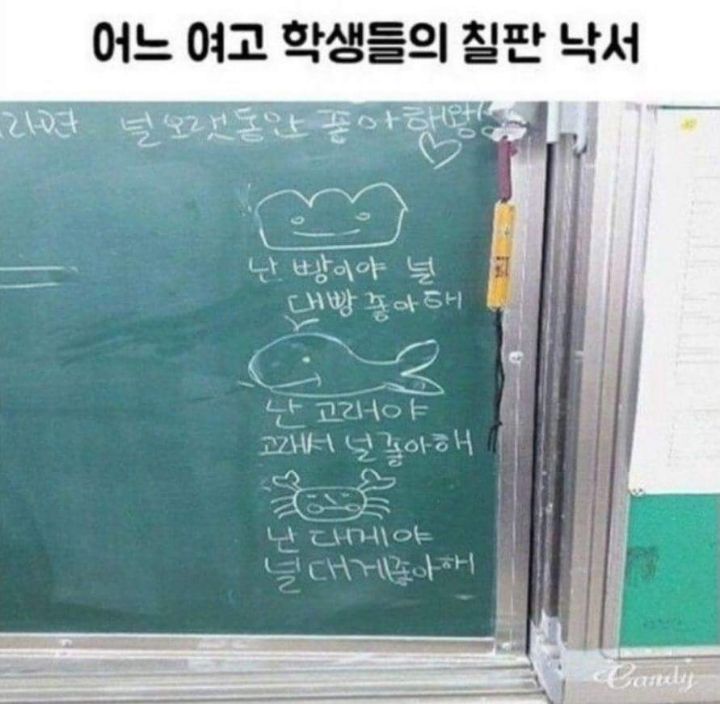 어느 여고 학생들의 칠판 낙서
널 오랫동안 좋아해왕
난 빵이야 널
대빵 좋아해
난 고래야
고래서 널 좋아해
난 대게야
널 대게좋아해
Candy